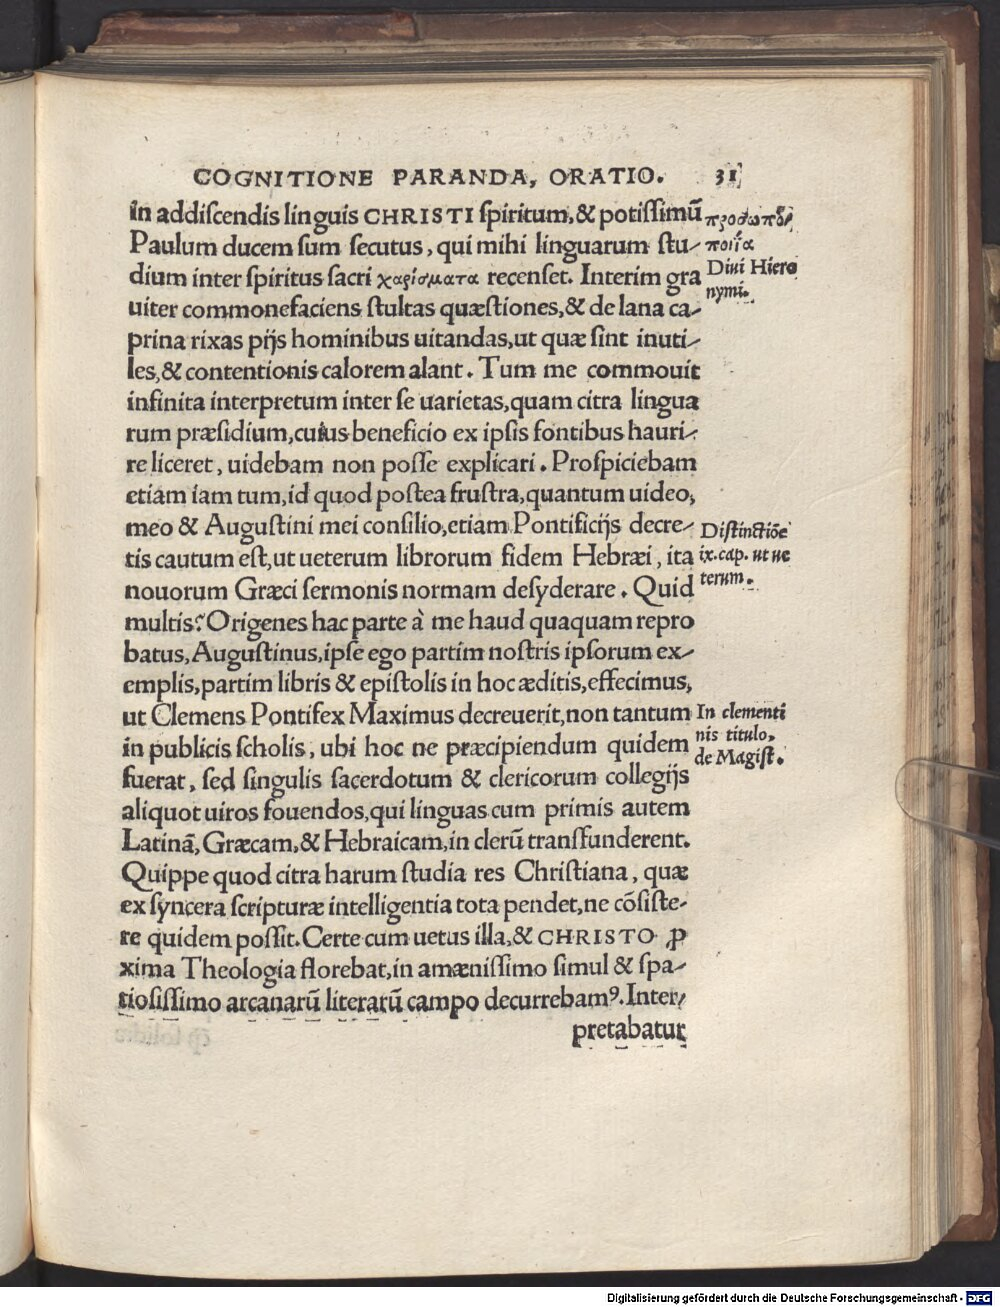 COGNITIONE PARANDA, ORATIO. 31
in addiſcendis linguis CHRISTI ſpiritum,& potiſſimū
Paulum ducem ſum ſecutus, qui mihi linguarum ſtu-
dium inter ſpiritus ſacri χαρίσματα recenſet. Interim gra
uiter commonefaciens ſtultas quæſtiones,& de lana ca-
prina rixas pijs hominibus uitandas,ut quæ ſint inuti-
les,& contentionis calorem alant. Tum me commouit
infinita interpretum inter ſe uarietas,quam citra lingua
rum præſidium,cuius beneficio ex ipſis fontibus hauri-
re liceret, uidebam non poſſe explicari. Proſpiciebam
etiam iam tum,id quod poſtea fruſtra,quantum uideo,
meo & Auguſtini mei conſilio,etiam Pontificijs decre-
tis cautum eſt,ut ueterum librorum fidem Hebræi, ita
nouorum Græci ſermonis normam deſyderare. Quid
multis? Origenes hac parte à me haud quaquam repro
batus,Auguſtinus,ipſe ego partim noſtris ipſorum ex-
emplis,partim libris & epiſtolis in hoc æditis,effecimus,
ut Clemens Pontifex Maximus decreuerit,non tantum
in publicis ſcholis, ubi hoc ne præcipiendum quidem
fuerat, ſed ſingulis ſacerdotum & clericorum collegijs
aliquot uiros fouendos,qui linguas cum primis autem
Latinā, Græcam,& Hebraicam,in clerū transfunderent.
Quippe quod citra harum ſtudia res Chriſtiana, quæ
ex ſyncera ſcripturæ intelligentia tota pendet,ne cōſiſte-
re quidem poſſit. Certe cum uetus illa,& CHRISTO ꝓ
xima Theologia florebat,in amœniſſimo ſimul & ſpa-
tioſiſſimo arcanarū literarū campo decurrebamꝰ. Inter-
pretabatur
προσωπο
ποιία
Diui Hiero
nymi.
Diſtinctiōe
ix.cap. ut ue
terum.
In clementi
nis titulo,
de Magiſt.
Digitalisierung gefördert durch die Deutsche Forschungsgemeinschaft - DFG